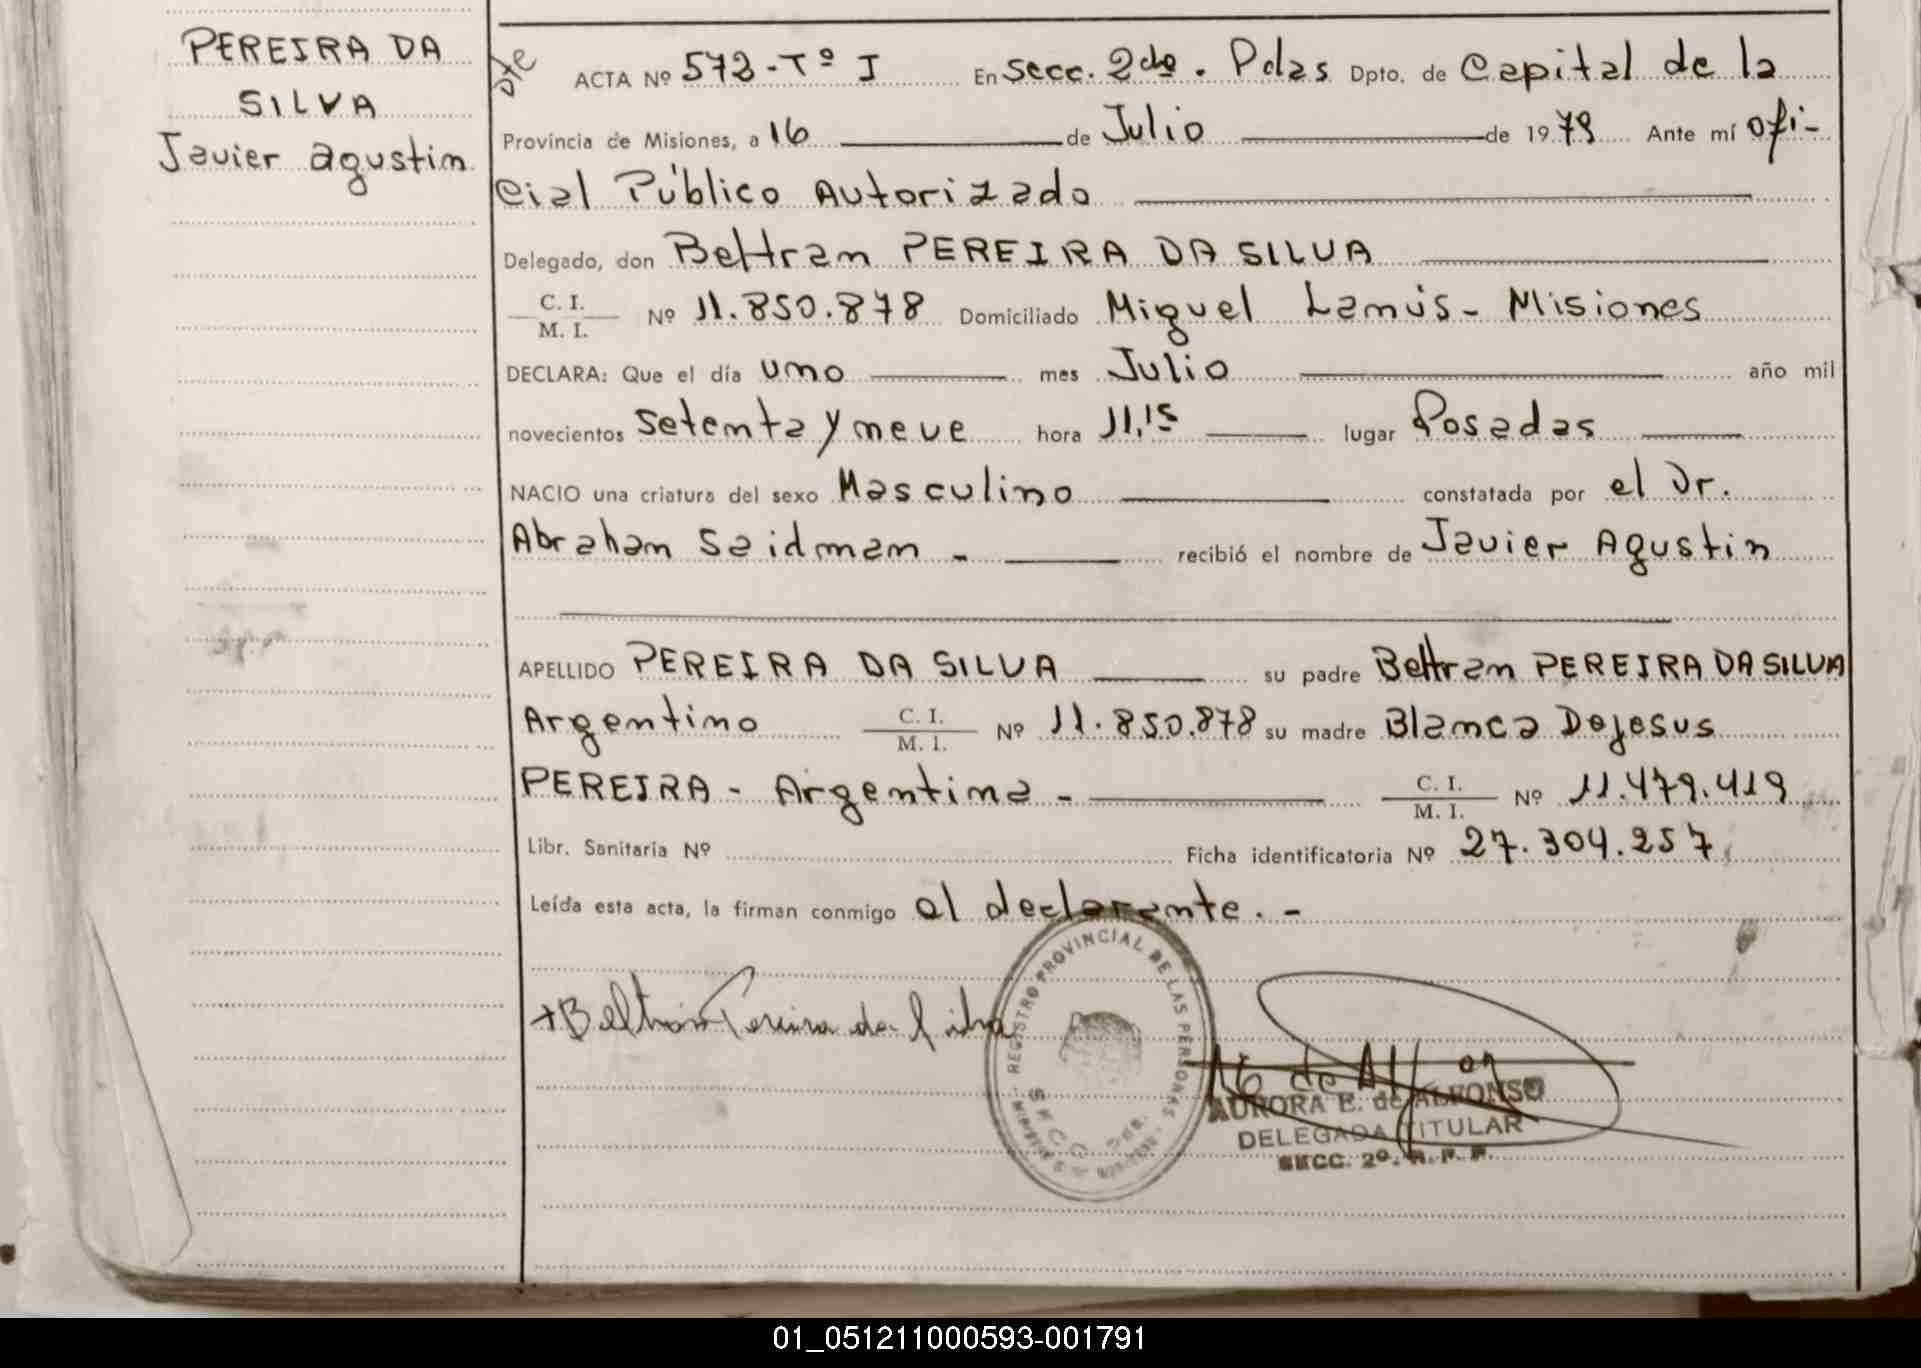 PEREIRA DA
SILVA
Javier agustin
ACTA Nº 573-Tº I En Secc. 2da. Pdas Dpto. de Capital de la
Provincia de Misiones, a 16 de Julio de 1979 Ante mí ofi-
cial Público Autorizado
Delegado, don Beltran PEREIRA DA SILVA
C. I.
M. I. Nº 11.850.878 Domiciliado Miguel Lanús - Misiones
DECLARA: Que el día uno mes Julio año mil
novecientos setenta y neve hora 11,15 lugar Posadas
NACIO una criatura del sexo Masculino constatada por el Dr.
Abraham Saidman - recibió el nombre de Javier Agustin
APELLIDO PEREIRA DA SILVA su padre Beltran PEREIRA DA SILVA
Argentino C. I. M. I. Nº 11.850.878 su madre Blanca Dejesus
PEREIRA - Argentina - C. I. M. I. Nº 11.479.419
Libr. Sanitaria Nº Ficha identificatoria Nº 27.304.257
Leída esta acta, la firman conmigo el declarante. -
+Beltran Pereira da Silva
REGISTRO PROVINCIAL DE LAS PERSONAS
SECC.
AURORA E. de ALFONSO
DELEGADA TITULAR
SECC. 2º. R. P. P.
01_051211000593-001791